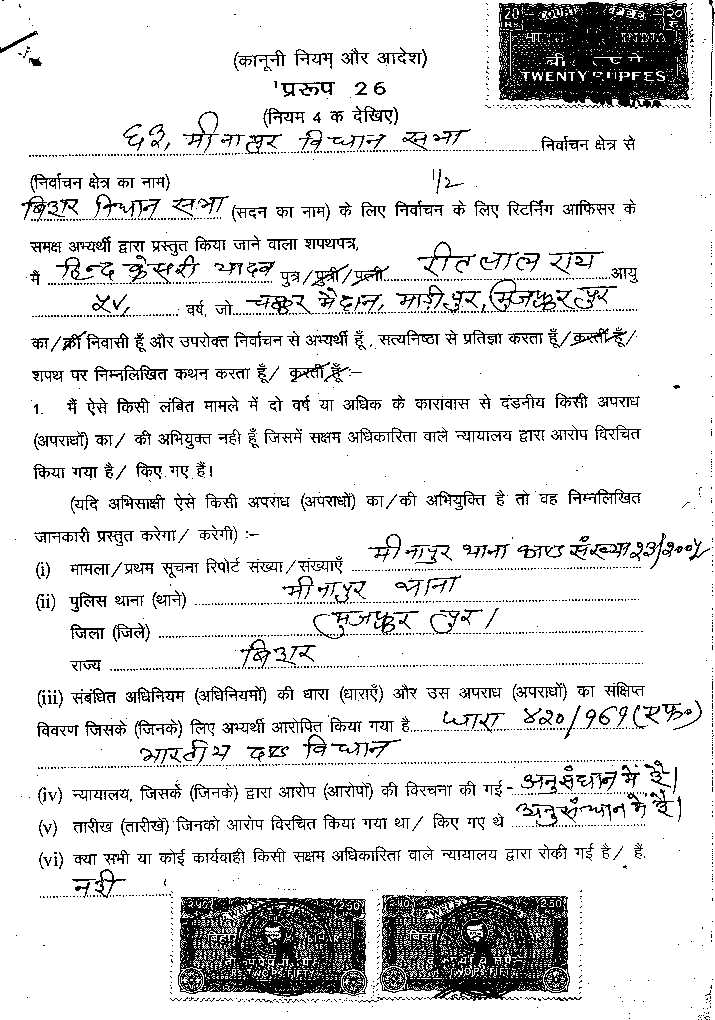 20
RS.
COURT FEE
२०
रु.
INDIA
TWENTY RUPEES
(कानूनी नियम् और आदेश)
प्ररूप 26
(नियम 4 क देखिए)
६३, मीनापुर विधान सभा निर्वाचन क्षेत्र से
(निर्वाचन क्षेत्र का नाम) 1/2
बिहार विधान सभा (सदन का नाम) के लिए निर्वाचन के लिए रिटर्निग आफिसर के
समक्ष अभ्यर्थी द्वारा प्रस्तुत किया जाने वाला शपथपत्र,
मै हिन्द केसरी यादव पुत्र/पुत्री/पत्नी रीतलाल राय आयु
५४, वर्ष, जो चक्कर मैदान, माड़ीपुर, मुजफ्फरपुर
का/की निवासी हूँ और उपरोक्त निर्वाचन से अभ्यर्थी हूँ, सत्यनिष्ठा से प्रतिज्ञा करता हूँ/करती हूँ/
शपथ पर निम्नलिखित कथन करता हूँ/ करती हूँ:–
1. मैं ऐसे किसी लंबित मामले में दो वर्ष या अधिक के कारावास से दंडनीय किसी अपराध
(अपराधों) का/ की अभियुक्त नही हूँ जिसमें सक्षम अधिकारिता वाले न्यायालय द्वारा आरोप विरचित
किया गया है/ किए गए हैं।
(यदि अभिसाक्षी ऐसे किसी अपराध (अपराधों) का/की अभियुक्ति है तो वह निम्नलिखित
जानकारी प्रस्तुत करेगा/ करेगी) :–
(i) मामला/प्रथम सूचना रिपोर्ट संख्या/संख्याएँ मीनापुर थाना काण्ड संख्या २३/२००५
(ii) पुलिस थाना (थाने) मीनापुर थाना
जिला (जिले) मुजफ्फरपुर।
राज्य बिहार
(iii) संबंधित अधिनियम (अधिनियमों) की धारा (धाराएँ) और उस अपराध (अपराधों) का संक्षिप्त
विवरण जिसके (जिनके) लिए अभ्यर्थी आरोपित किया गया है धारा ४२०/१७१(एफ०)
भारतीय दण्ड विधान
(iv) न्यायालय, जिसके (जिनके) द्वारा आरोप (आरोपों) की विरचना की गई - अनुसंधान में है।
(v) तारीख (तारीखें) जिनको आरोप विरचित किया गया था/ किए गए थे अनुसंधान में है।
(vi) क्या सभी या कोई कार्यवाही किसी सक्षम अधिकारिता वाले न्यायालय द्वारा रोकी गई है/ हैं.
नही